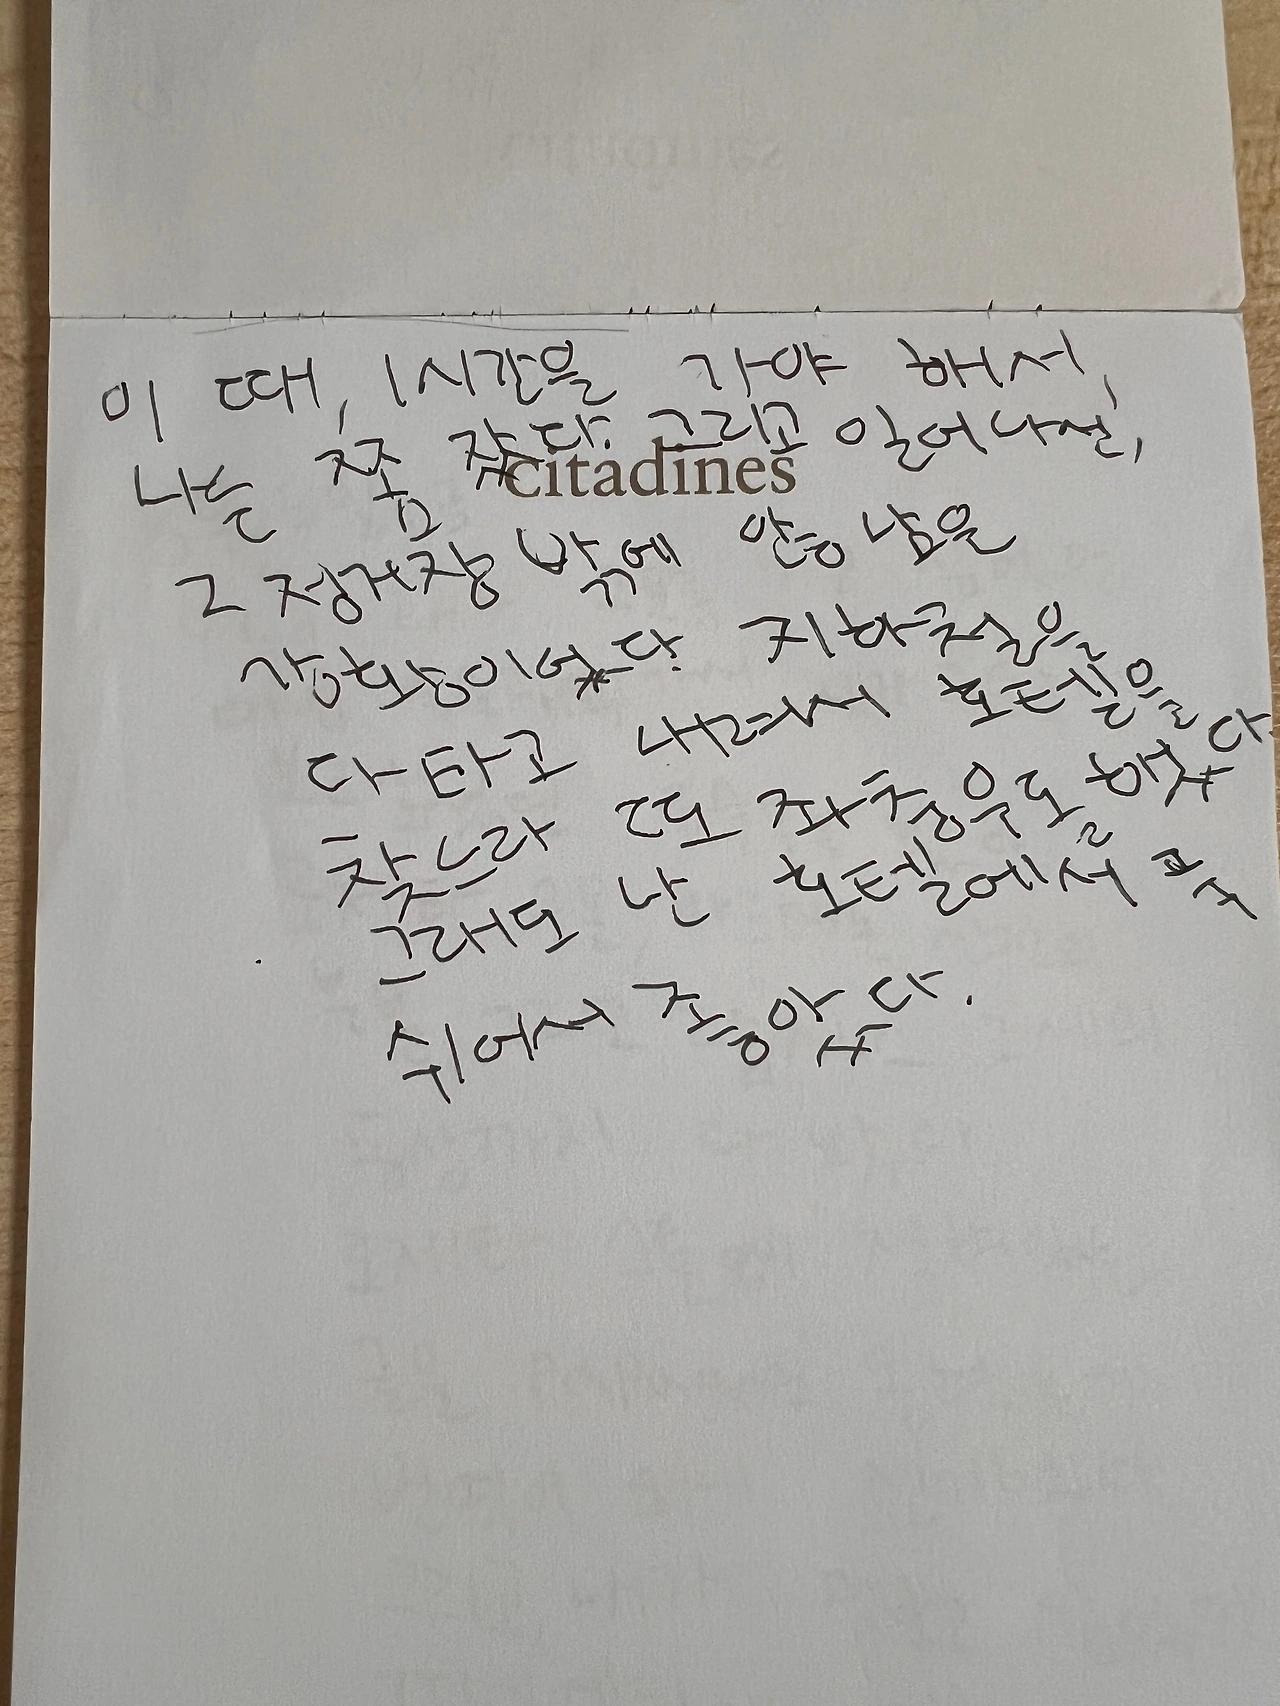 이 때, 1시간을 가야 해서,
나는 좀 잤다. 그리고 일어나선,
citadines
그 정거장 밖에 안 남은
상황이었다. 지하철을
다 타고 내려서 호텔을
찾느라 또 좌충우돌 했다
그래도 난 호텔에서 푹
쉬어서 좋았다.